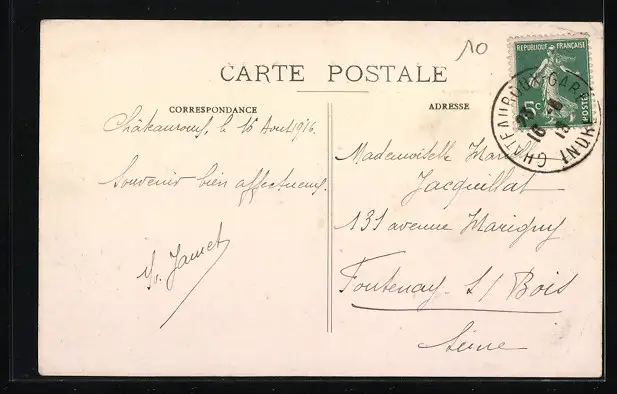 10
CARTE POSTALE
REPUBLIQUE FRANÇAISE
5c
POSTES
CHATEAUROUX-GARE
INDRE
CORRESPONDANCE
ADRESSE
Châteauroux, le 16 Aout 1916.
Souvenir bien affectueux.
Jamet
Mademoiselle
Jacquillat
131 avenue Marigny
Fontenay s/ Bois
Seine